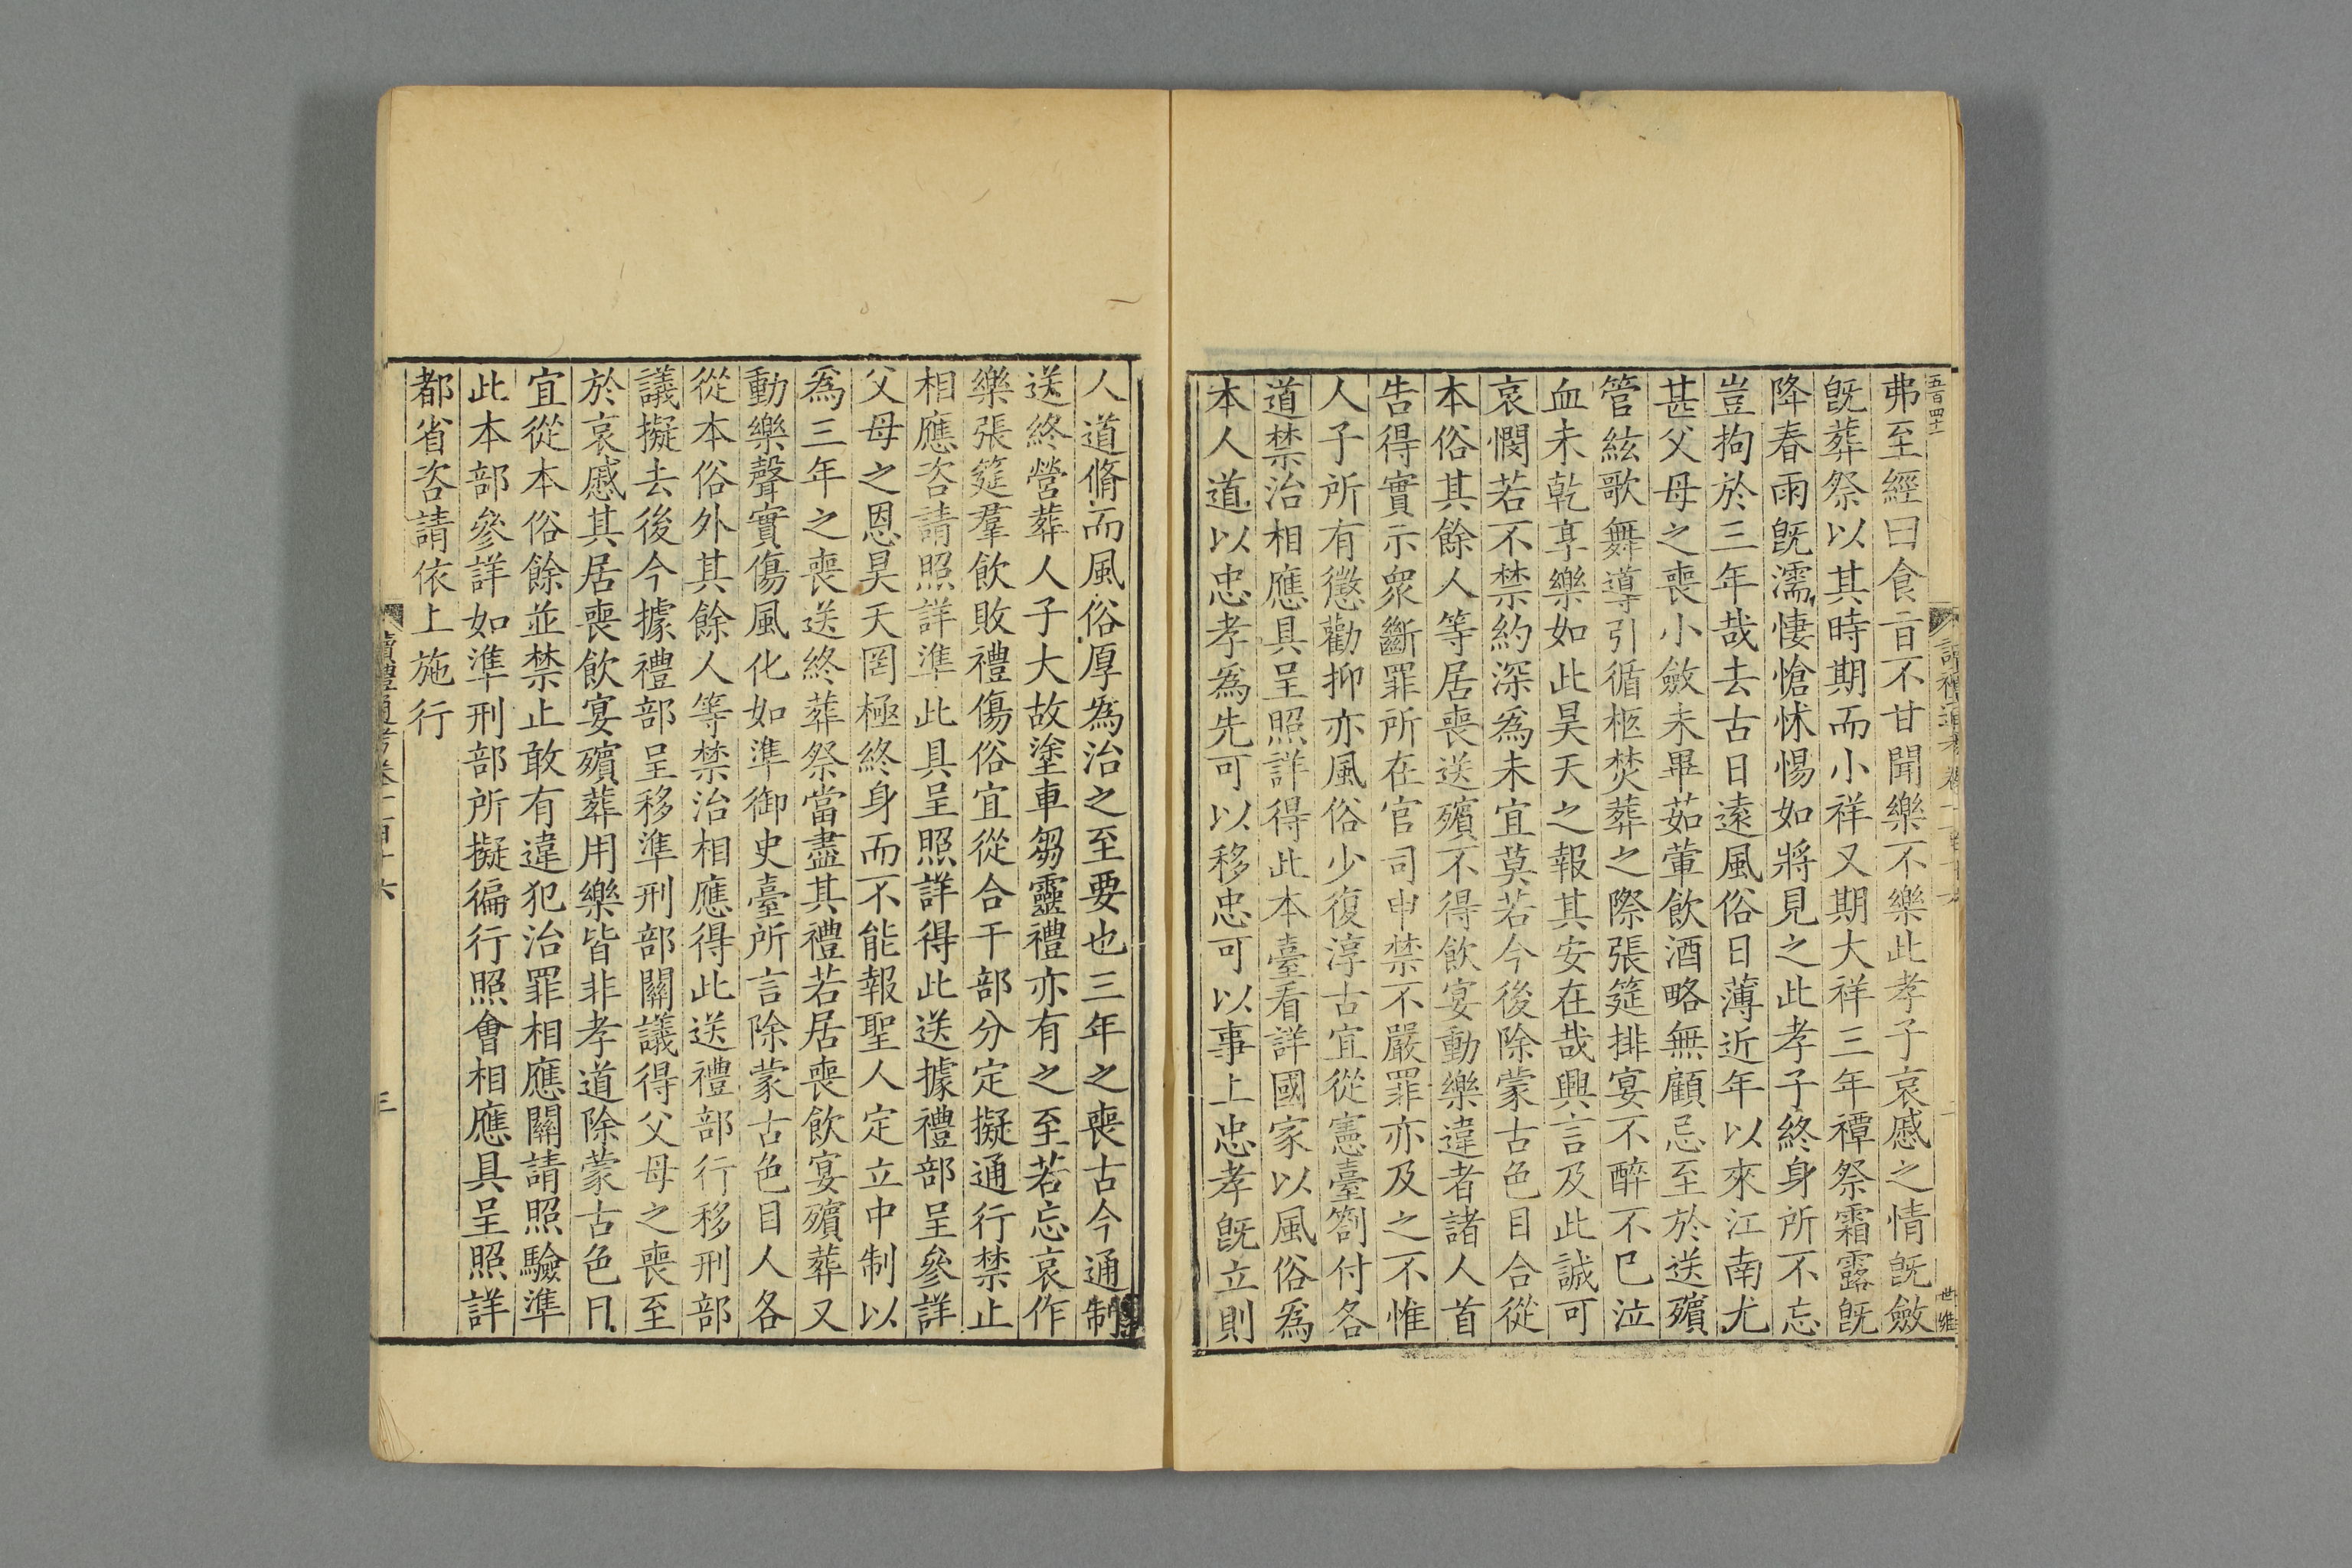 五百四十一
弗至經曰食旨不甘聞樂不樂此孝子哀慼之情旣斂
旣葬祭以其時期而小祥又期大祥三年禫祭霜露旣
降春雨旣濡悽愴怵惕如將見之此孝子終身所不忘
豈拘於三年哉去古日遠風俗日薄近年以來江南尤
甚父母之喪小斂未畢茹葷飲酒略無顧忌至於送殯
管絃歌舞導引循柩焚葬之際張筵排宴不醉不已泣
血未乾享樂如此昊天之報其安在哉興言及此誠可
哀憫若不禁約深爲未宜莫若今後除蒙古色目合從
本俗其餘人等居喪送殯不得飲宴動樂違者諸人首
告得實示衆斷罪所在官司申禁不嚴罪亦及之不惟
人子所有懲勸抑亦風俗少復淳古宜從憲臺劄付各
道禁治相應具呈照詳得此本臺看詳國家以風俗爲
本人道以忠孝爲先可以移忠可以事上忠孝旣立則
人道脩而風俗厚爲治之至要也三年之喪古今通制
送終營葬人子大故塗車芻靈禮亦有之至若忘哀作
樂張筵羣飲敗禮傷俗宜從合干部分定擬通行禁止
相應咨請照詳準此具呈照詳得此送據禮部呈參詳
父母之恩昊天罔極終身而不能報聖人定立中制以
爲三年之喪送終葬祭當盡其禮若居喪飲宴殯葬又
動樂聲實傷風化如準御史臺所言除蒙古色目人各
從本俗外其餘人等禁治相應得此送禮部行移刑部
議擬去後今據禮部呈移準刑部關議得父母之喪至
於哀慼其居喪飲宴殯葬用樂皆非孝道除蒙古色目
宜從本俗餘並禁止敢有違犯治罪相應關請照驗準
此本部參詳如準刑部所擬徧行照會相應具呈照詳
都省咨請依上施行
讀禮通考卷一百十六
三